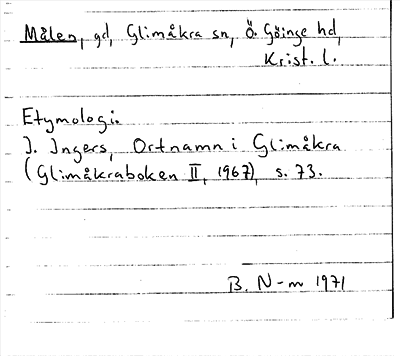 Målen, gd, Glimåkra sn, Ö. Göinge hd,
Krist. l.
Etymologi.
I. Ingers, Ortnamn i Glimåkra
(Glimåkraboken II, 1967), s. 73.
B. N-m 1971